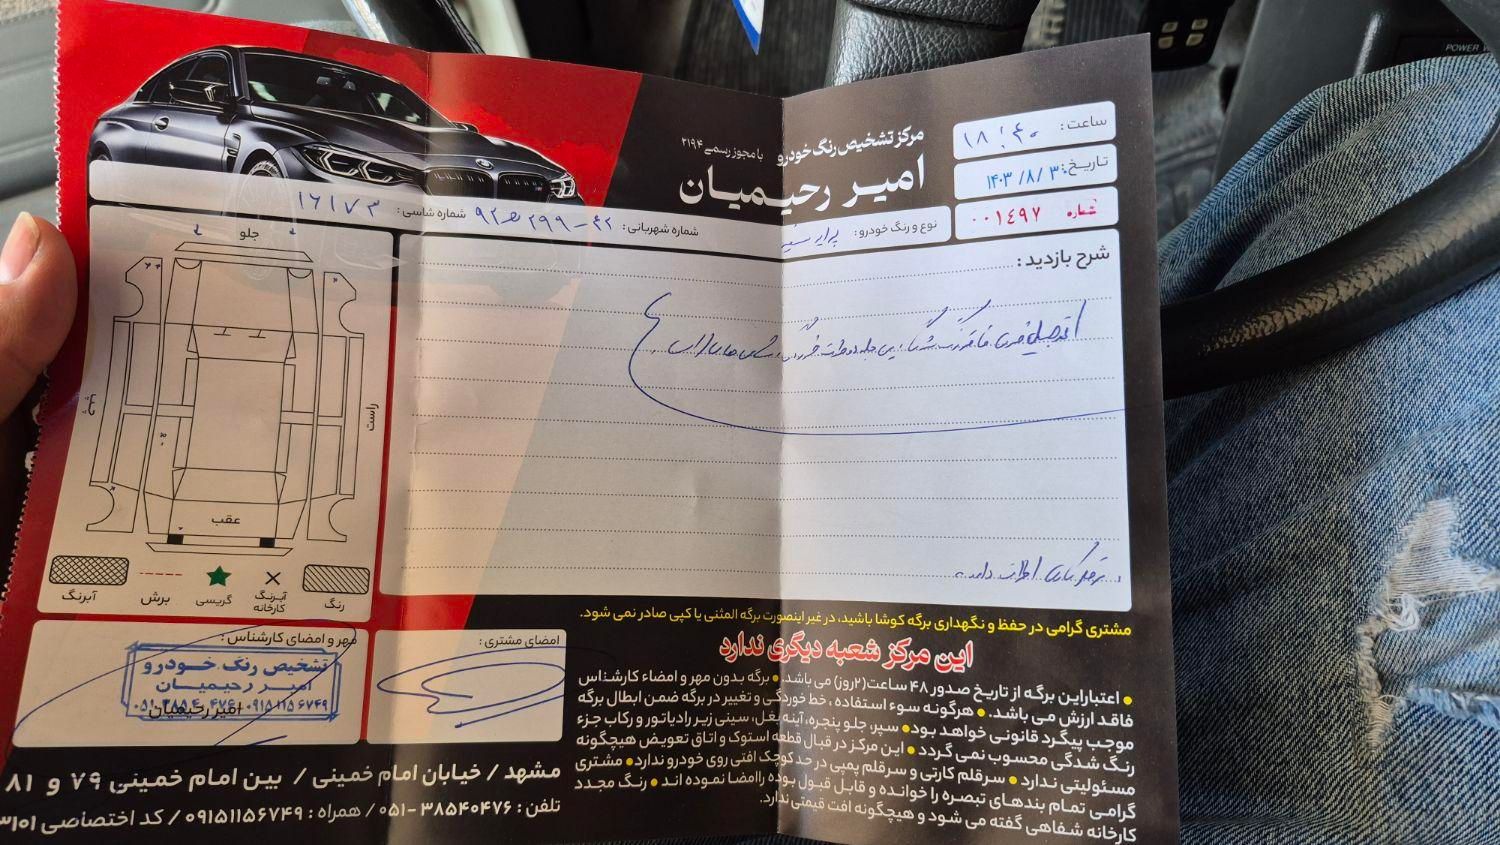 POWER
ساعت: ۱۸:۴۰
تاریخ: ۱۴۰۳/۸/۳۰
شماره ۰۰۱۴۹۷
مرکز تشخیص رنگ خودرو
با مجوز رسمی ۲۱۹۴
امیر رحیمیان
نوع و رنگ خودرو: پراید سفید
شماره شهربانی:
شماره شاسی: ۱۶۱۷۳
شرح بازدید:
جلو
چپ
راست
عقب
رنگ
آبرنگ کارخانه
گریسی
برش
آبرنگ
مشتری گرامی در حفظ و نگهداری برگه کوشا باشید، در غیر اینصورت برگه المثنی یا کپی صادر نمی شود.
این مرکز شعبه دیگری ندارد
● اعتباراین برگه از تاریخ صدور ۴۸ ساعت(۲روز) می باشد. ● برگه بدون مهر و امضاء کارشناس
فاقد ارزش می باشد. ● هرگونه سوء استفاده ، خط خوردگی و تغییر در برگه ضمن ابطال برگه
موجب پیگرد قانونی خواهد بود ● سپر، جلو پنجره، آینه بغل، سینی زیر رادیاتور و رکاب جزء
رنگ شدگی محسوب نمی گردد ● این مرکز در قبال قطعه استوک و اتاق تعویض هیچگونه
مسئولیتی ندارد ● سرقلم کارتی و سرقلم پمپی در حد کوچک افتی روی خودرو ندارد ● مشتری
گرامی تمام بندهای تبصره را خوانده و قابل قبول بوده راامضا نموده اند ● رنگ مجدد
کارخانه شفاهی گفته می شود و هیچگونه افت قیمتی ندارد.
امضای مشتری:
مهر و امضای کارشناس:
تشخیص رنگ خودرو
امیر رحیمیان
۰۹۱۵۱۱۵۶۷۴۹ ۰۵۱-۳۸۵۴۰۴۷۶
امیر رحیمیان
مشهد / خیابان امام خمینی / بین امام خمینی ۷۹ و 81
تلفن: ۳۸۵۴۰۴۷۶-۰۵۱ / همراه: ۰۹۱۵۱۱۵۶۷۴۹ / کد اختصاصی